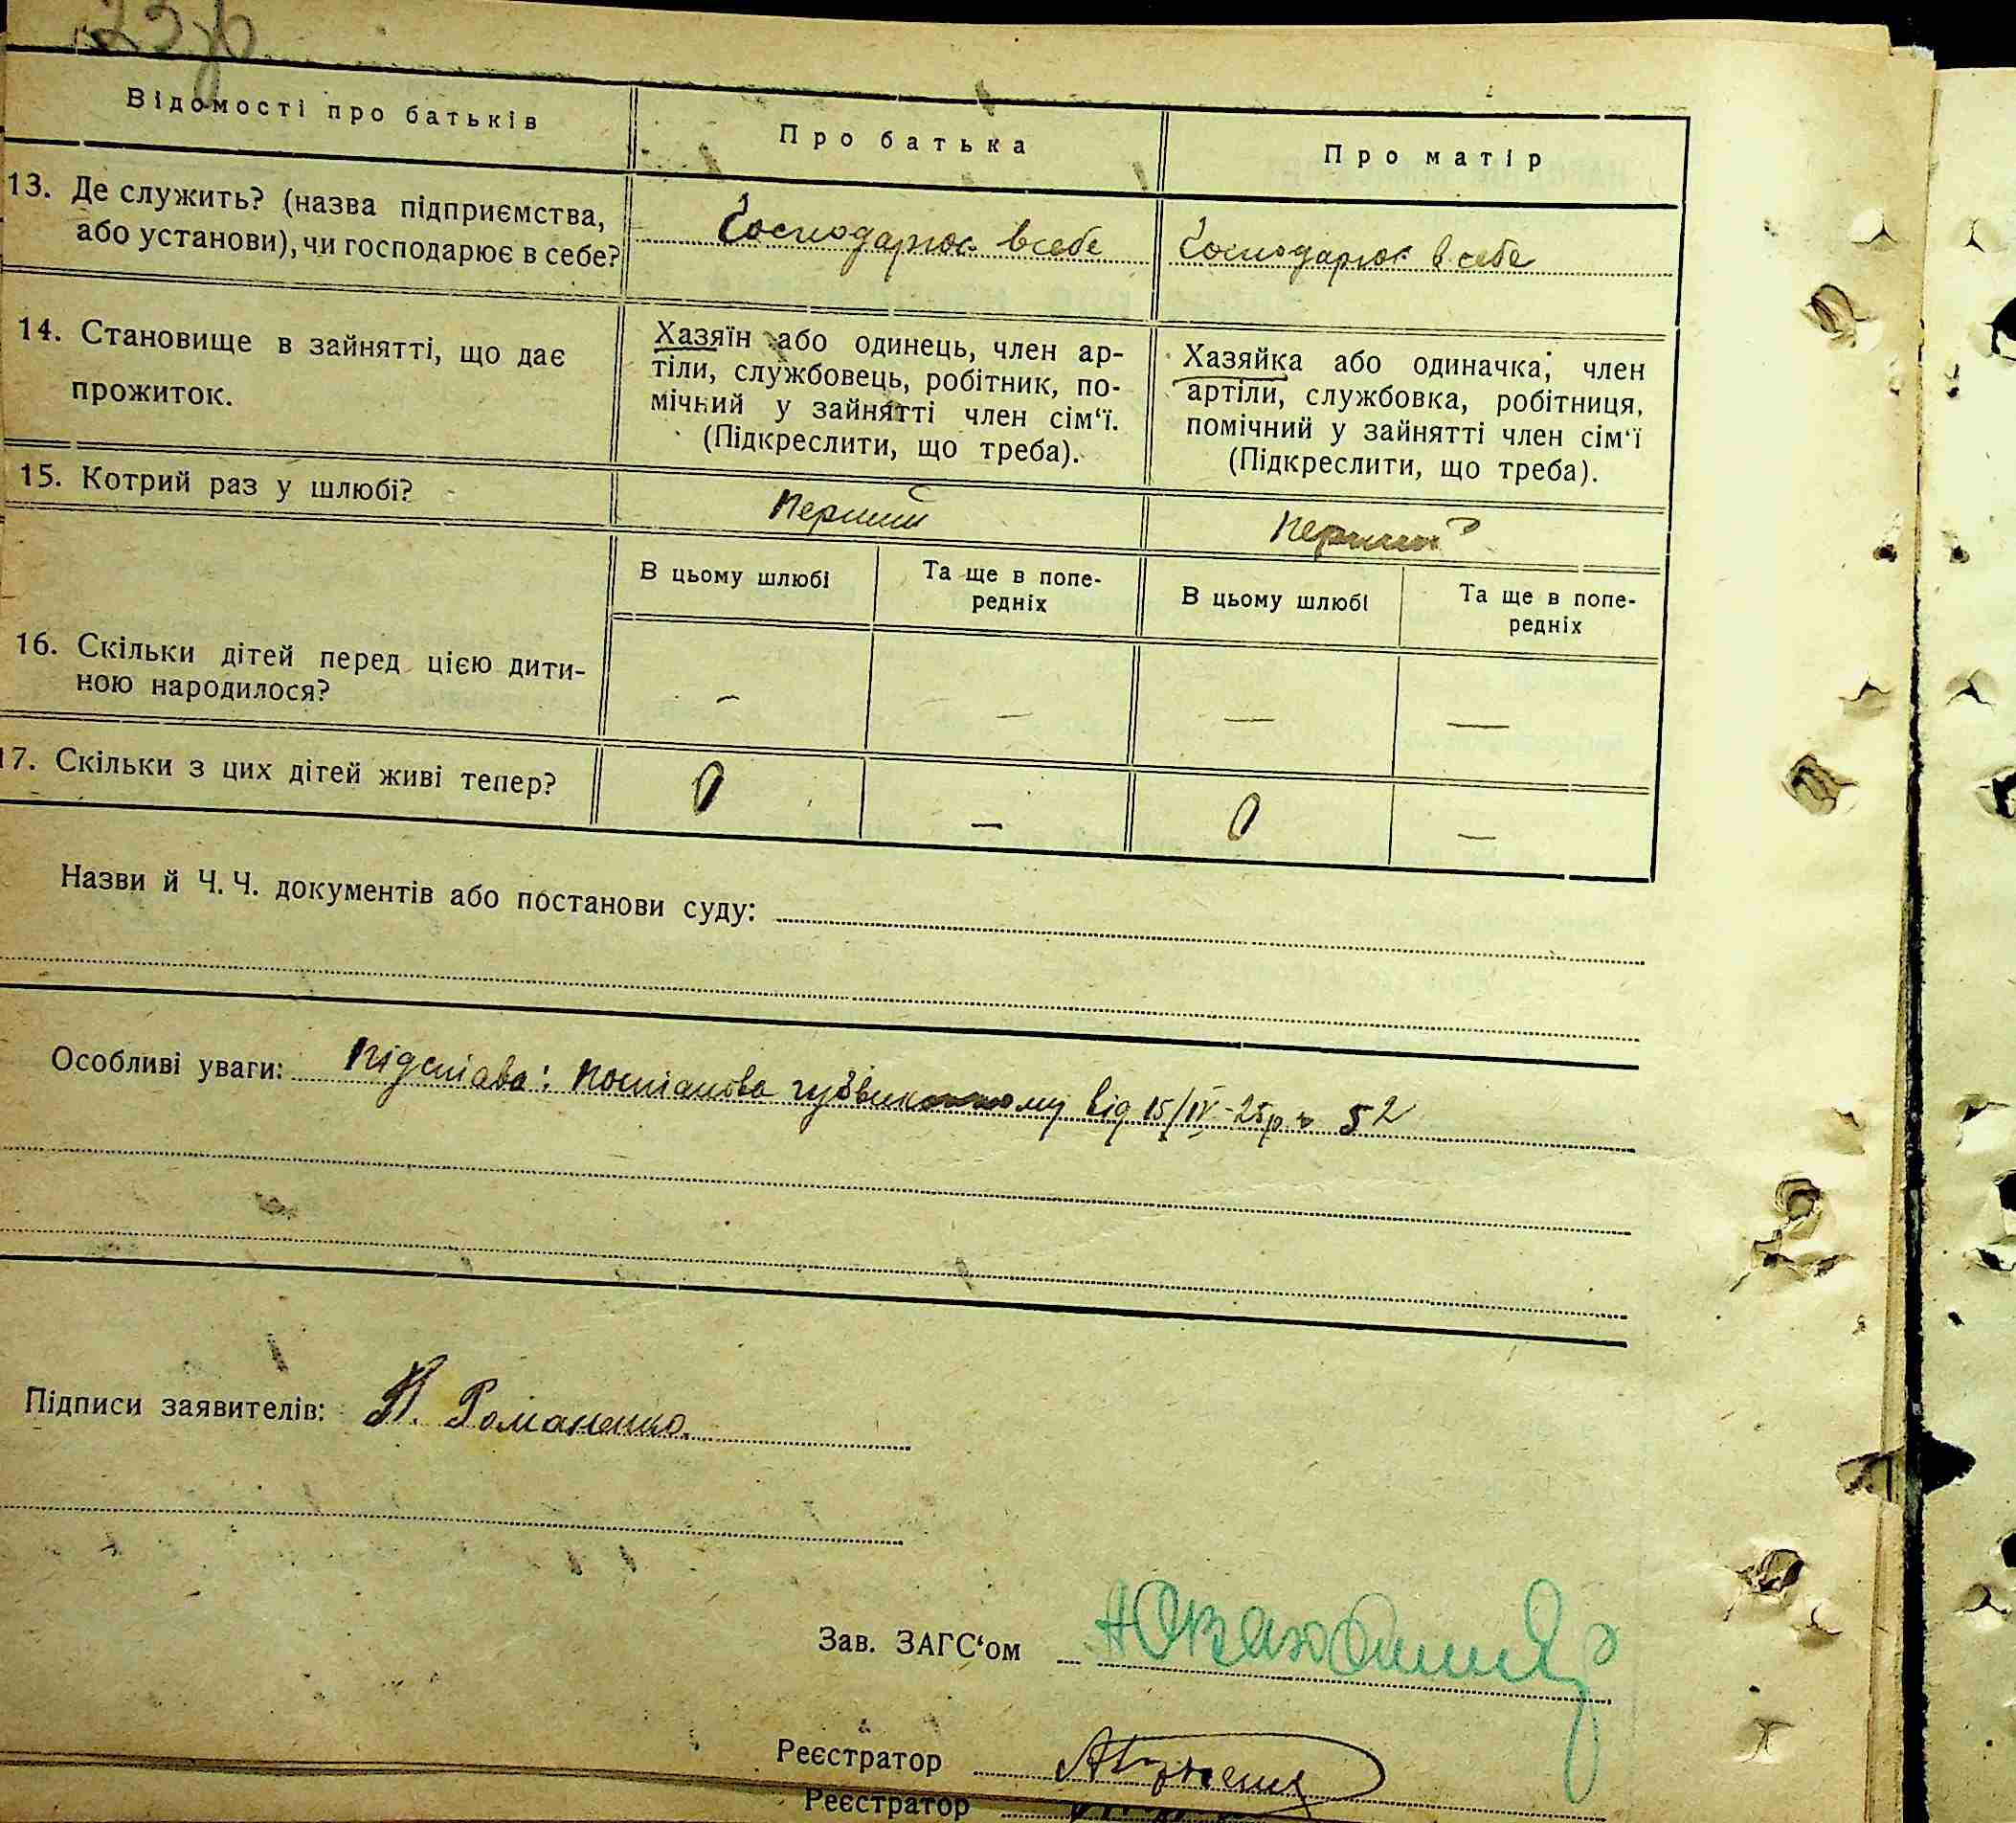 Відомості про батьків
Про батька
Про матір
13. Де служить? (назва підприємства,
або установи), чи господарює в себе?
Господарює в себе
Господарює в себе
14. Становище в зайнятті, що дає
прожиток.
Хазяїн або одинець, член ар-
тіли, службовець, робітник, по-
мічний у зайнятті член сім‘ї.
(Підкреслити, що треба).
Хазяйка або одиначка, член
артіли, службовка, робітниця,
помічний у зайнятті член сім‘ї
(Підкреслити, що треба).
15. Котрий раз у шлюбі?
Перший
Перший
В цьому шлюбі
Та ще в попе-
редніх
В цьому шлюбі
Та ще в попе-
редніх
16. Скільки дітей перед цією дити-
ною народилося?
–
–
—
—
17. Скільки з цих дітей живі тепер?
0
—
0
—
Назви й Ч. Ч. документів або постанови суду:
Особливі уваги: Підстава: Постанова від 15/IV-25р 52
Підписи заявителів: Романенко.
Зав. ЗАГС‘ом
Реєстратор
Реєстратор